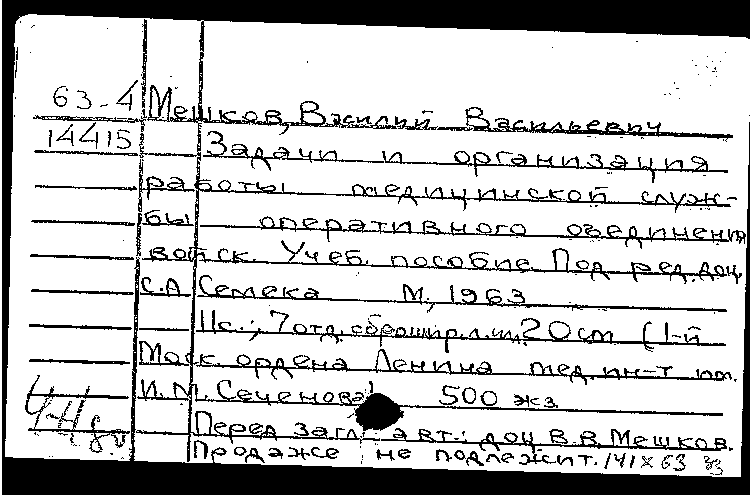 63-4 Мешков, Василий Васильевич
14415 Задачи и организация
работы медицинской служ-
бы оперативного объединения
войск. Учеб. пособие. Под ред. доц.
С.А. Семека М., 1963
11с.; 7 отд. сброшир. л. ил. 20 см (1-й
Моск. ордена Ленина мед. ин-т им.
И.М. Сеченова) 500 экз.
Перед загл. авт.: доц. В.В. Мешков.
Продаже не подлежит. 141 х 63